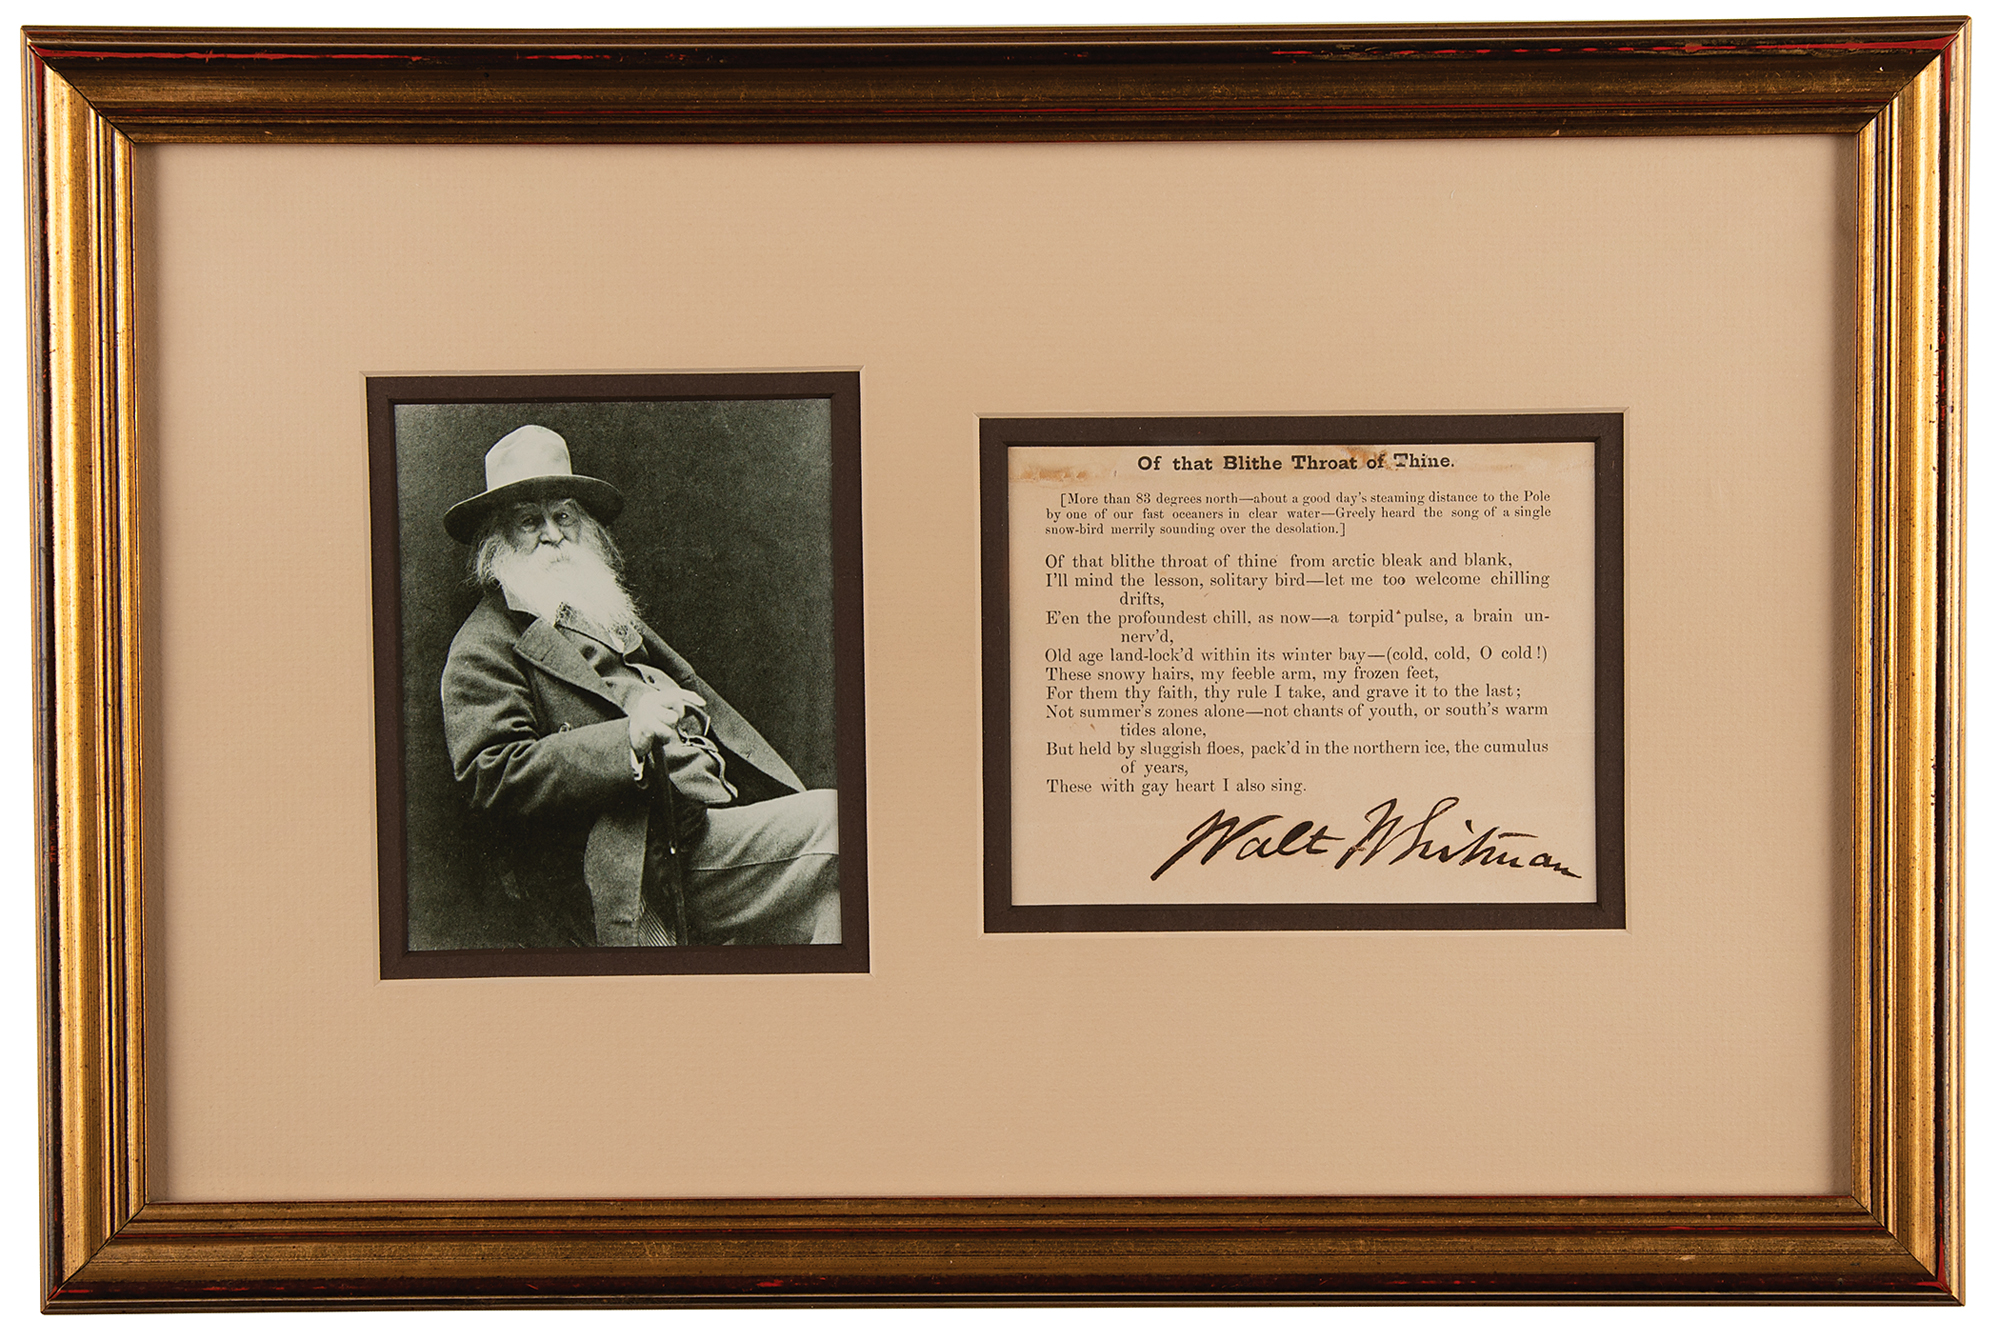 Of that Blithe Throat of Thine.
[More than 83 degrees north—about a good day's steaming distance to the Pole
by one of our fast oceaners in clear water—Greely heard the song of a single
snow-bird merrily sounding over the desolation.]
Of that blithe throat of thine from arctic bleak and blank,
I'll mind the lesson, solitary bird—let me too welcome chilling
drifts,
E'en the profoundest chill, as now—a torpid pulse, a brain un-
nerv'd,
Old age land-lock'd within its winter bay—(cold, cold, O cold!)
These snowy hairs, my feeble arm, my frozen feet,
For them thy faith, thy rule I take, and grave it to the last;
Not summer's zones alone—not chants of youth, or south's warm
tides alone,
But held by sluggish floes, pack'd in the northern ice, the cumulus
of years,
These with gay heart I also sing.
Walt Whitman